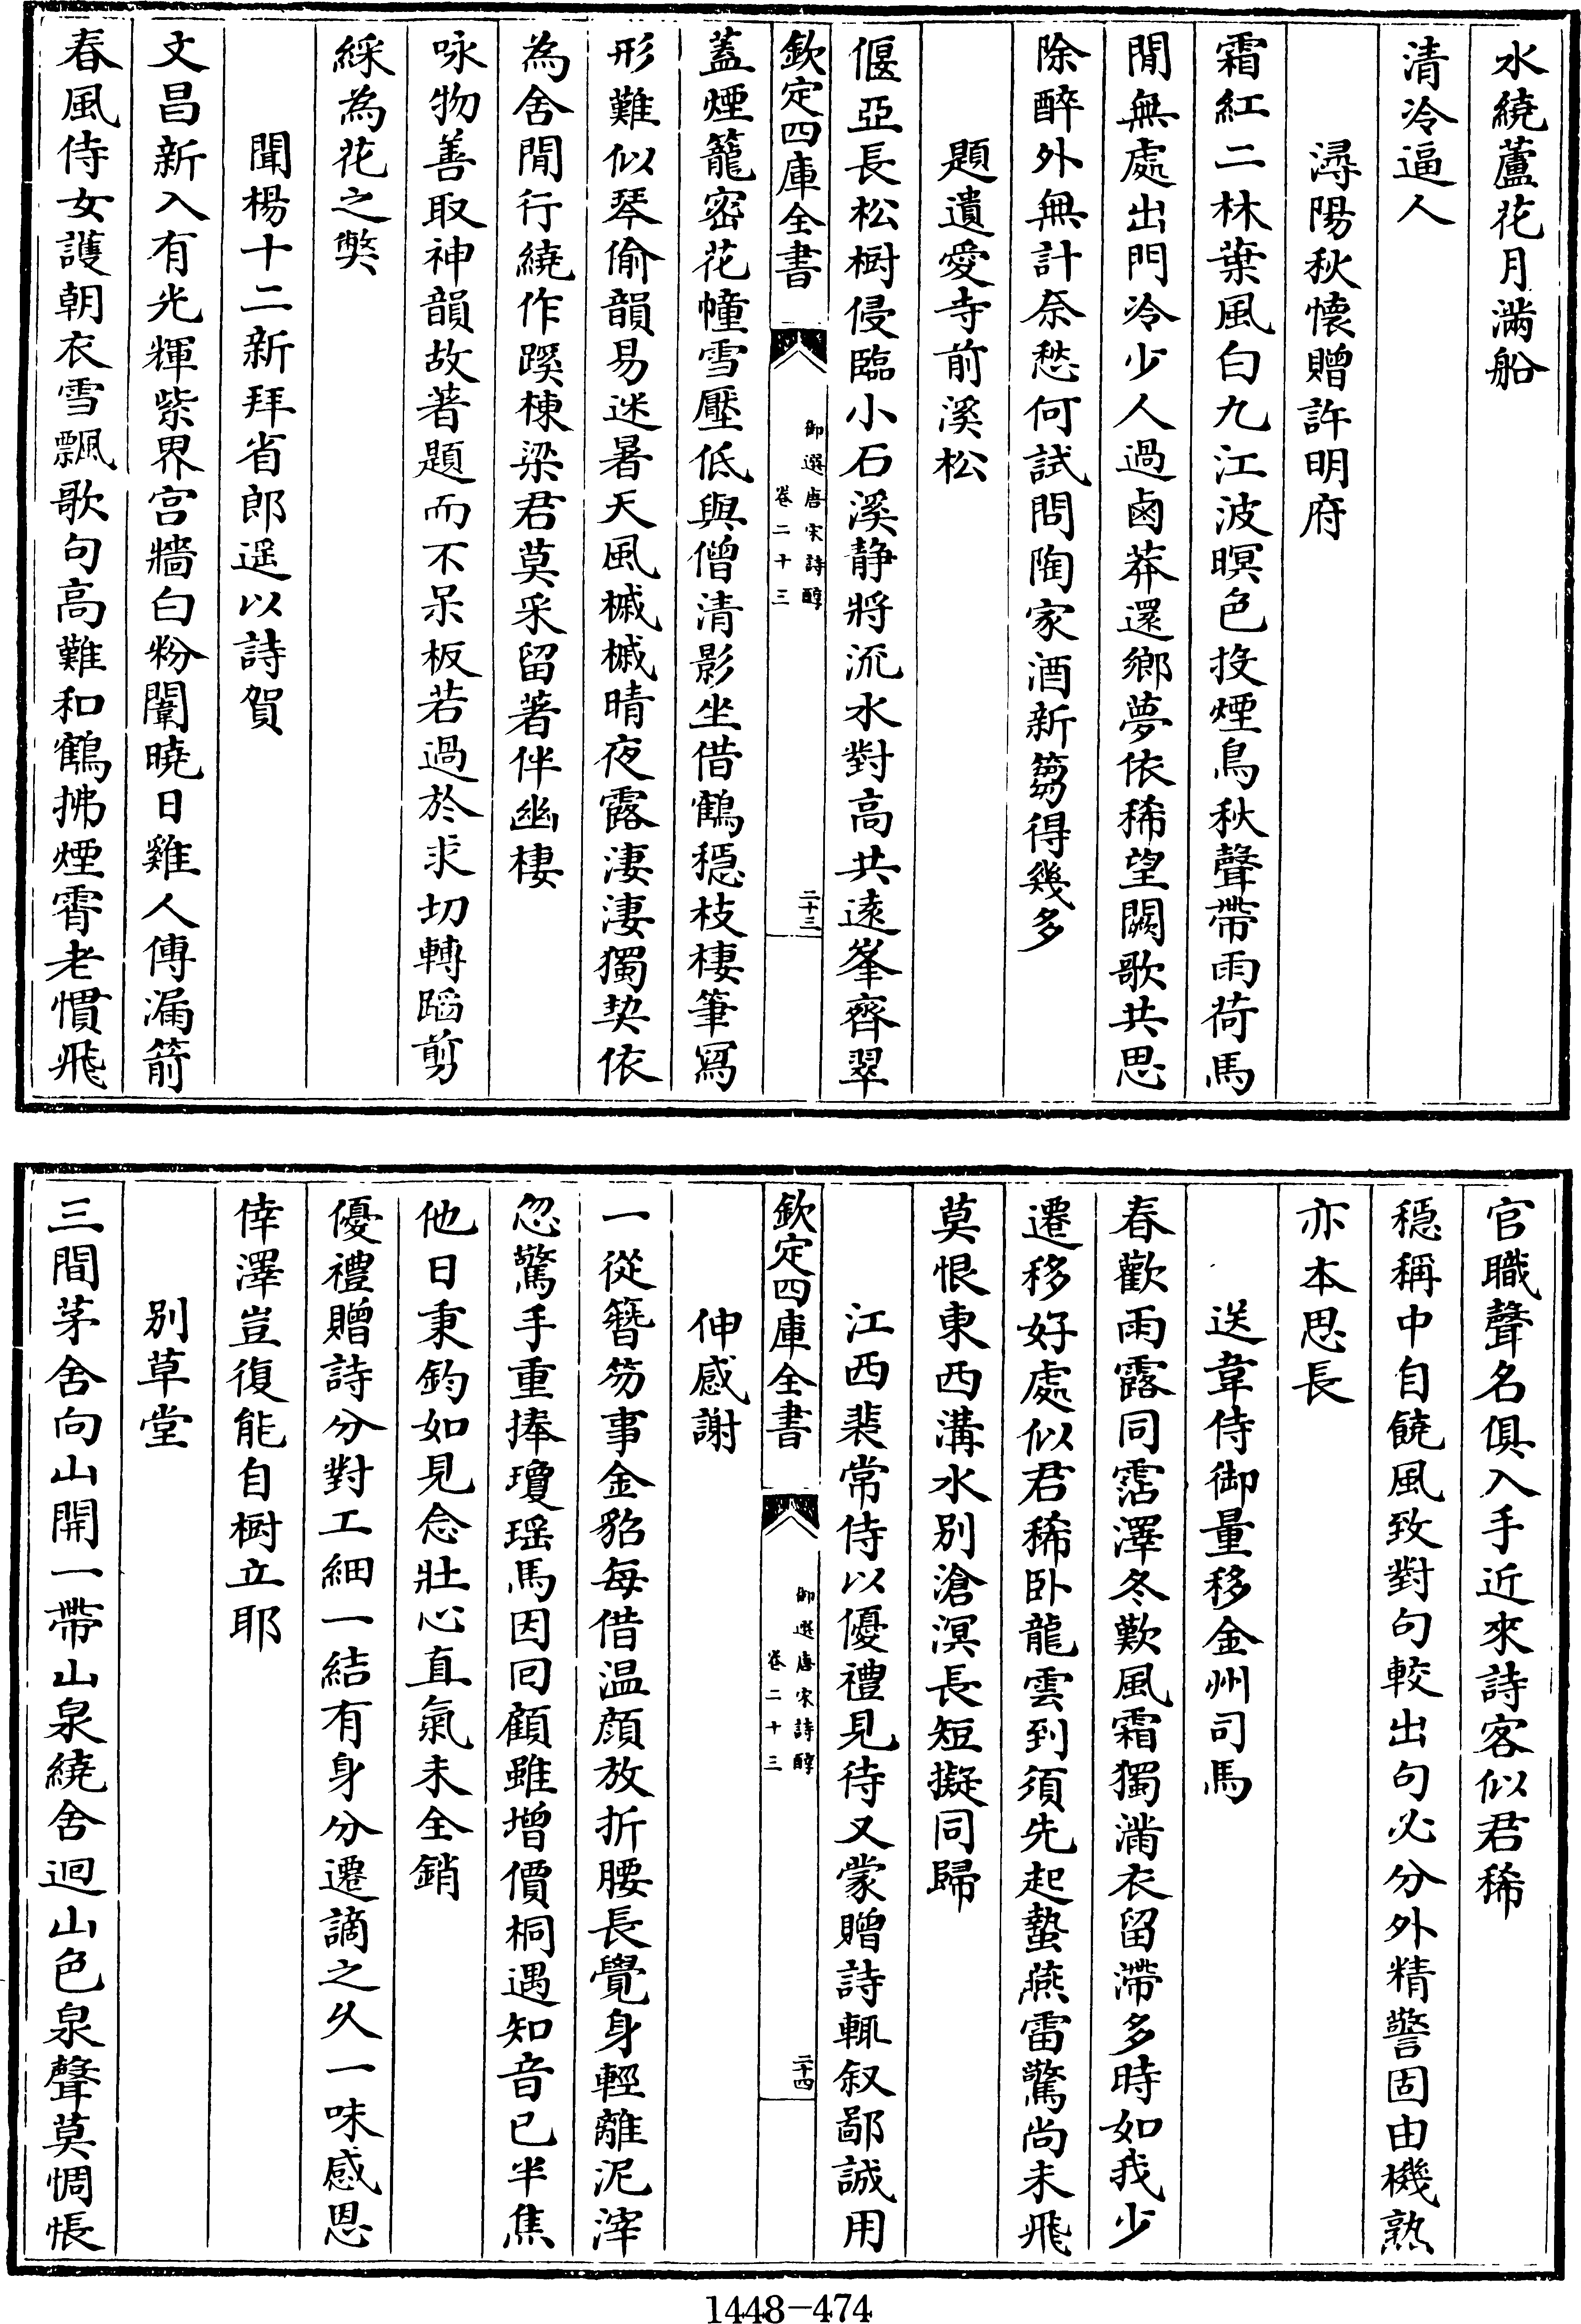 水繞蘆花月滿船
清冷逼人
潯陽秋懷贈許明府
霜紅二林葉風白九江波暝色投煙鳥秋聲帶雨荷馬
閒無處出門冷少人過鹵莽還鄉夢依稀望闕歌共思
除醉外無計奈愁何試問陶家酒新篘得幾多
題遺愛寺前溪松
偃亞長松樹侵臨小石溪静將流水對高共遠峯齊翠
欽定四庫全書
御選唐宋詩醇
卷二十三
二十三
蓋煙籠密花幢雪壓低與僧清影坐借鶴穩枝棲筆寫
形難似琴偷韻易迷暑天風槭槭晴夜露淒淒獨契依
為舍閒行繞作蹊棟梁君莫采留著伴幽棲
咏物善取神韻故著題而不呆板若過於求切轉蹈剪
綵為花之獘
聞楊十二新拜省郎遥以詩賀
文昌新入有光輝紫界宫牆白粉闈曉日雞人傳漏箭
春風侍女護朝衣雪飄歌句高難和鶴拂煙霄老慣飛
官職聲名俱入手近來詩客似君稀
穩稱中自饒風致對句較出句必分外精警固由機熟
亦本思長
送韋侍御量移金州司馬
春歡雨露同霑澤冬歎風霜獨滿衣留滯多時如我少
遷移好處似君稀卧龍雲到須先起蟄燕雷驚尚未飛
莫恨東西溝水别滄溟長短擬同歸
江西裴常侍以優禮見待又蒙贈詩輒叙鄙誠用
欽定四庫全書
御選唐宋詩醇
卷二十三
二十四
伸感謝
一從簪笏事金貂每借温顔放折腰長覺身輕離泥滓
忽驚手重捧瓊瑶馬因回顧雖增價桐遇知音已半焦
他日秉鈞如見念壯心直氣未全銷
優禮贈詩分對工細一結有身分遷謫之久一味感恩
倖澤豈復能自樹立耶
别草堂
三間茅舍向山開一帶山泉繞舍迴山色泉聲莫惆悵
1448-474